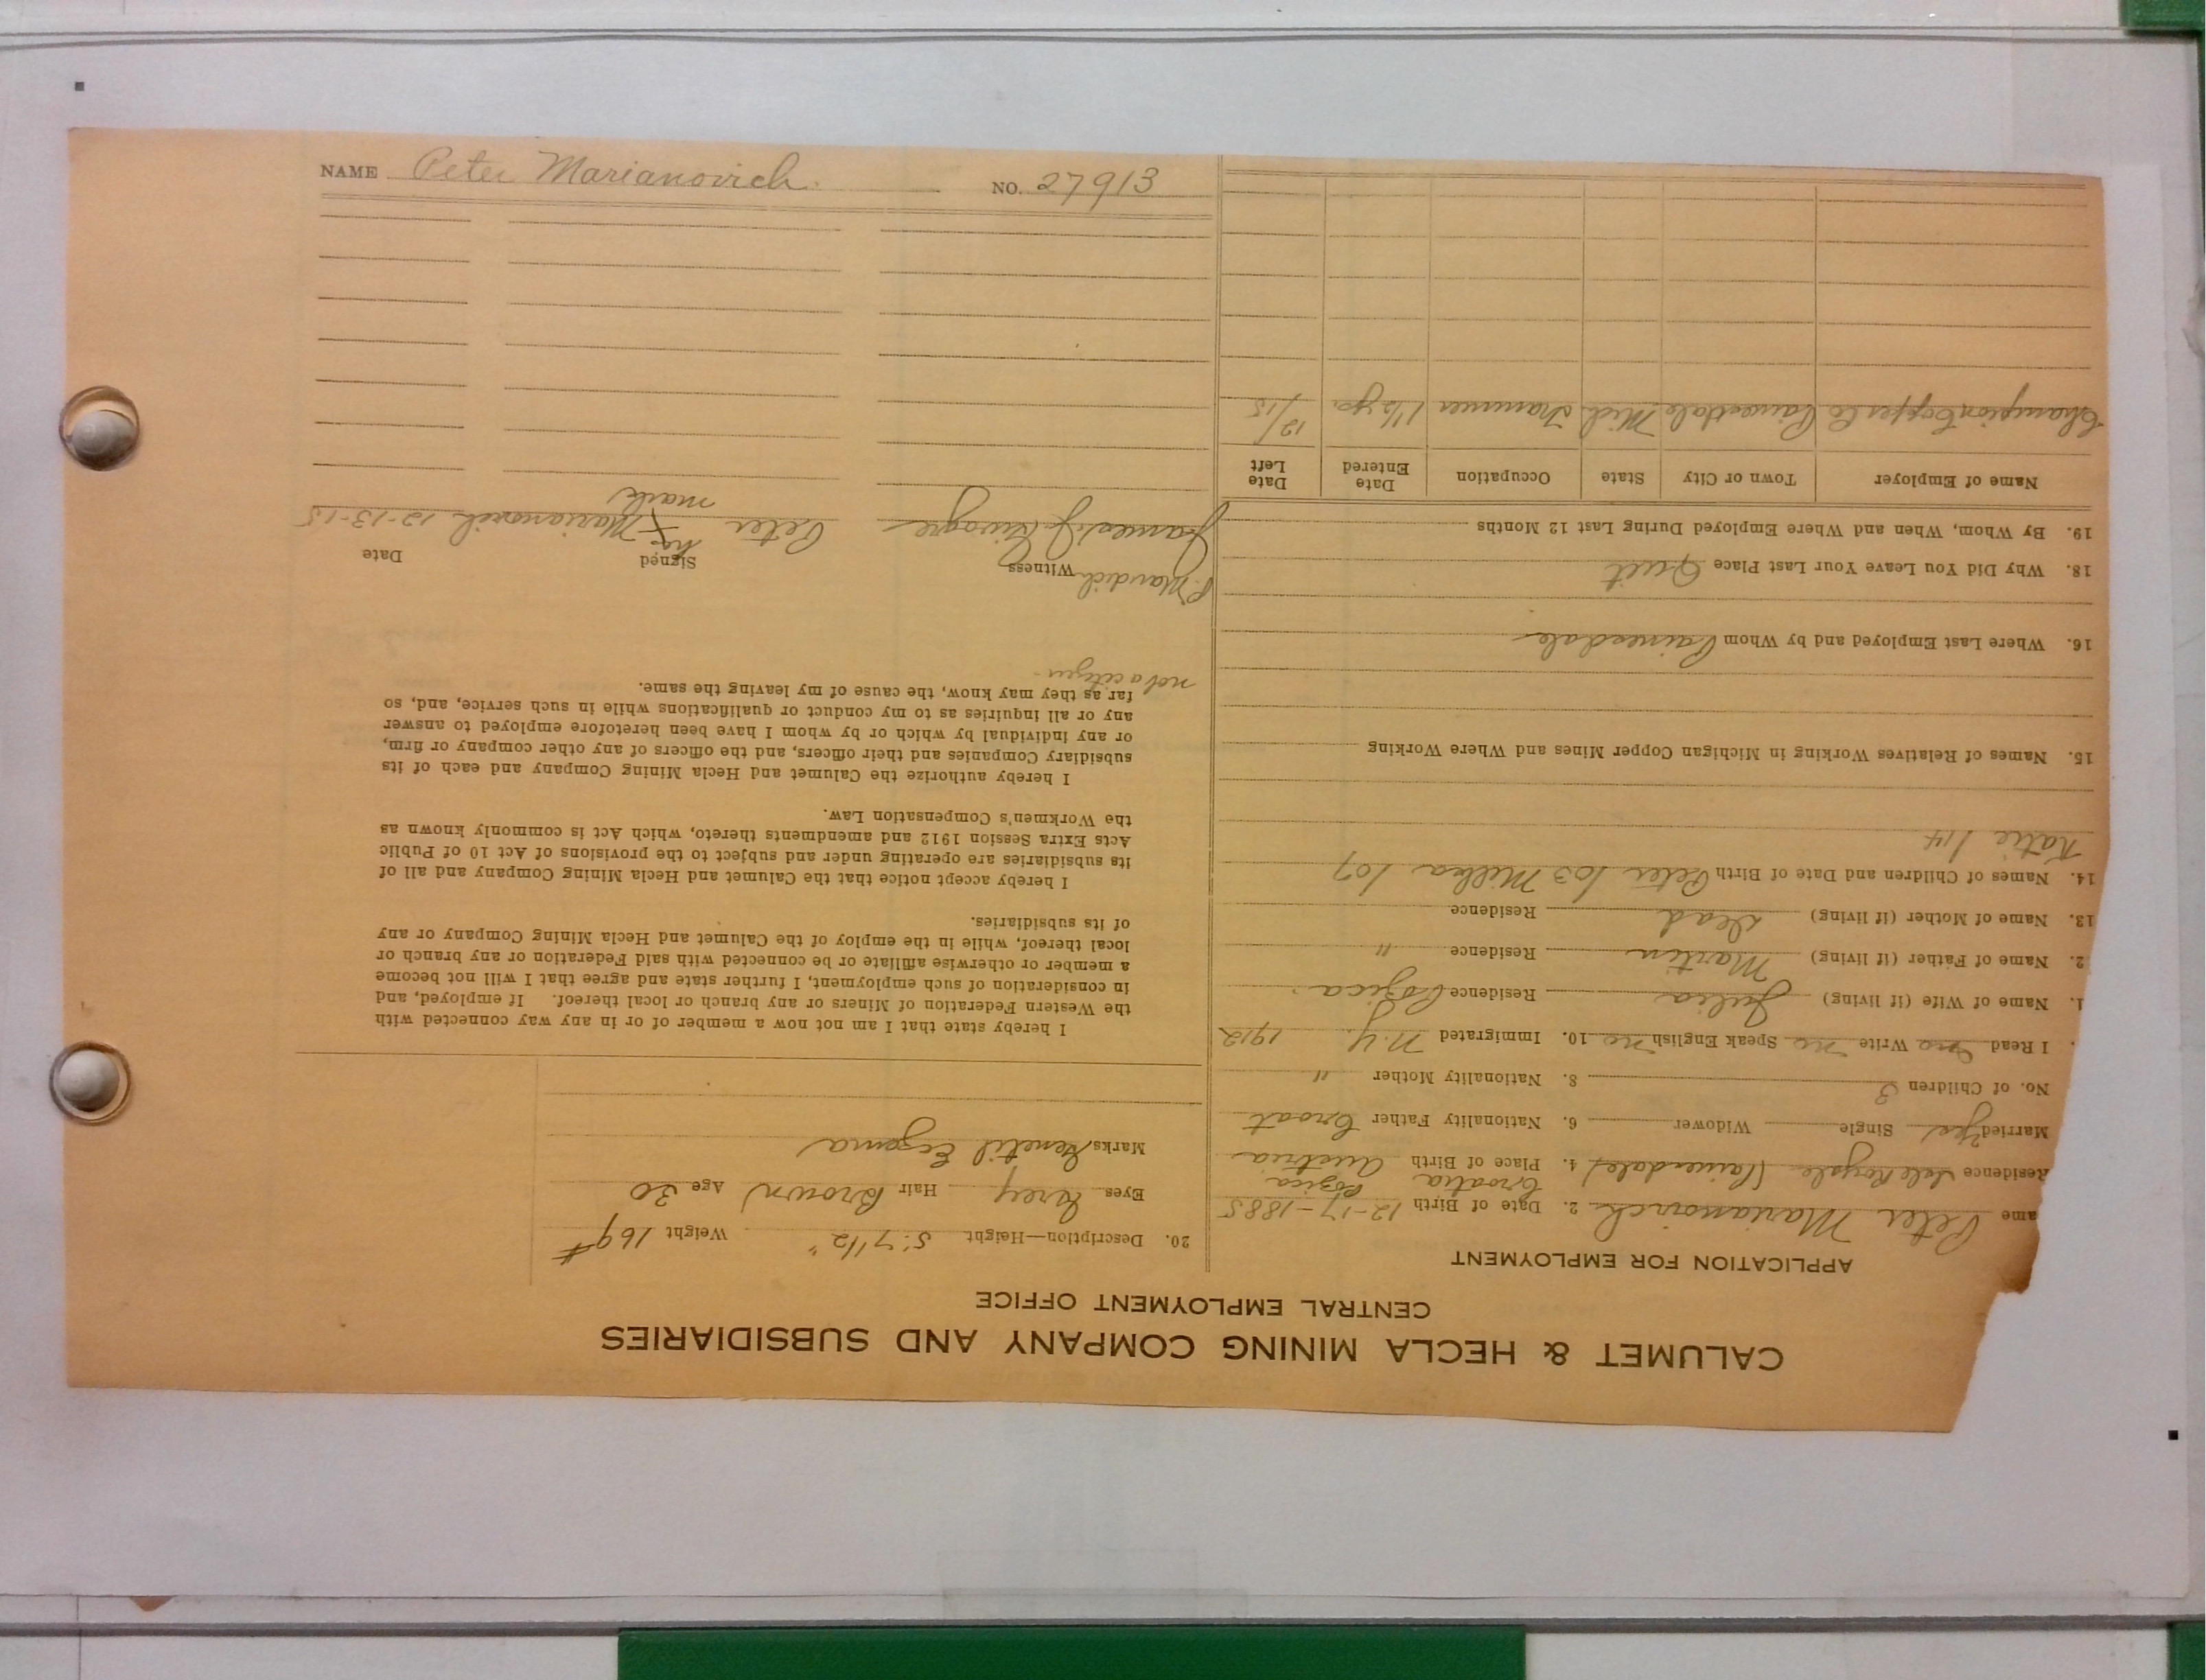 NAME Peter Marianovich. NO. 27913
CALUMET & HECLA MINING COMPANY AND SUBSIDIARIES
CENTRAL EMPLOYMENT OFFICE
APPLICATION FOR EMPLOYMENT
ame Peter Marianovich 2. Date of Birth 12-17-1885
Croatia Pozica
Residence Isle Royale (Painesdale) 4. Place of Birth Austria
Married Yes Single Widower 6. Nationality Father Croat
No. of Children 3 8. Nationality Mother "
I Read no Write no Speak English no 10. Immigrated N.Y. 1912
1. Name of Wife (if living) Julia Residence Pozica
2. Name of Father (if living) Martin Residence "
13. Name of Mother (if living) dead Residence
14. Names of Children and Date of Birth Peter /03 Milka /07
Katie /14
15. Names of Relatives Working in Michigan Copper Mines and Where Working
16. Where Last Employed and by Whom Painesdale
18. Why Did You Leave Your Last Place Quit
19. By Whom, When and Where Employed During Last 12 Months
Name of Employer Town or City State Occupation Date Entered Date Left
Champion Copper Co Painesdale Mich Trammer 1 1/2 yr. 12/15
20. Description—Height 5' 7 1/2" Weight 169#
Eyes Grey Hair Brown Age 30
Marks Eczema
I hereby state that I am not now a member of or in any way connected with
the Western Federation of Miners or any branch or local thereof. If employed, and
in consideration of such employment, I further state and agree that I will not become
a member or otherwise affiliate or be connected with said Federation or any branch or
local thereof, while in the employ of the Calumet and Hecla Mining Company or any
of its subsidiaries.
I hereby accept notice that the Calumet and Hecla Mining Company and all of
its subsidiaries are operating under and subject to the provisions of Act 10 of Public
Acts Extra Session 1912 and amendments thereto, which Act is commonly known as
the Workmen's Compensation Law.
I hereby authorize the Calumet and Hecla Mining Company and each of its
subsidiary Companies and their officers, and the officers of any other company or firm,
or any individual by which or by whom I have been heretofore employed to answer
any or all inquiries as to my conduct or qualifications while in such service, and, so
far as they may know, the cause of my leaving the same.
not a citizen
P. Mavdich Witness Signed Date
his
James J. Peter X Marianovich 12-13-15
mark